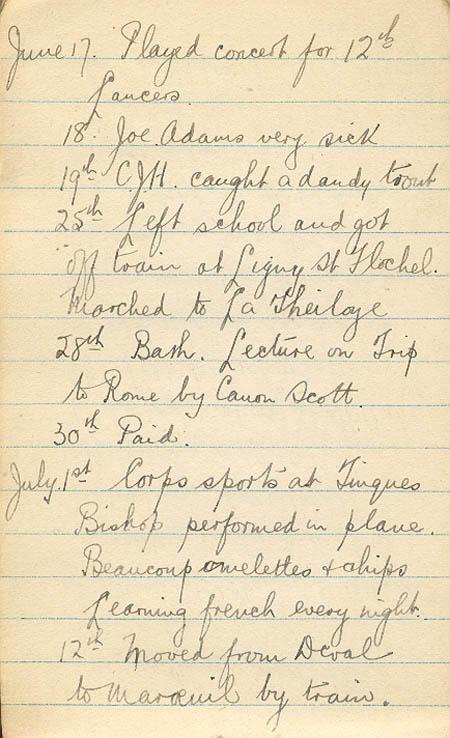 June 17. Played concert for 12th
Lancers.
18. Joe Adams very sick
19th C.J.H. caught a dandy trout
25th Left school and got
off train at Ligny St Flochel.
Marched to La Theiloye
28th Bath. Lecture on Trip
to Rome by Canon Scott.
30th Paid.
July 1st Corps sports at Tinques
Bishop performed in plane.
Beaucoup omelettes & chips
Learning french every night.
12th Moved from Deval
to Maroeuil by train.